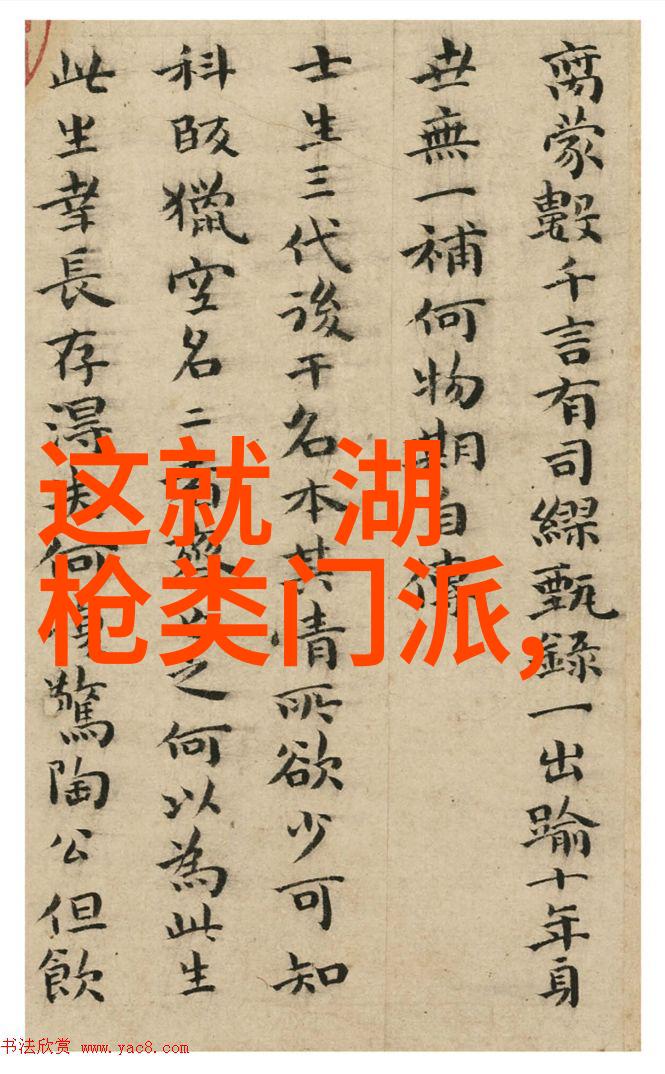 蒙數千言有司繆甄録一出踰十年身
世無一補何物期自傳
士生三代後干名本其情所欲少可知
科獵空名二之何以為此生
此生幸長存得失何驚陶公但飲
这就 湖
枪类门派,
书法欣赏 www.yac8.com